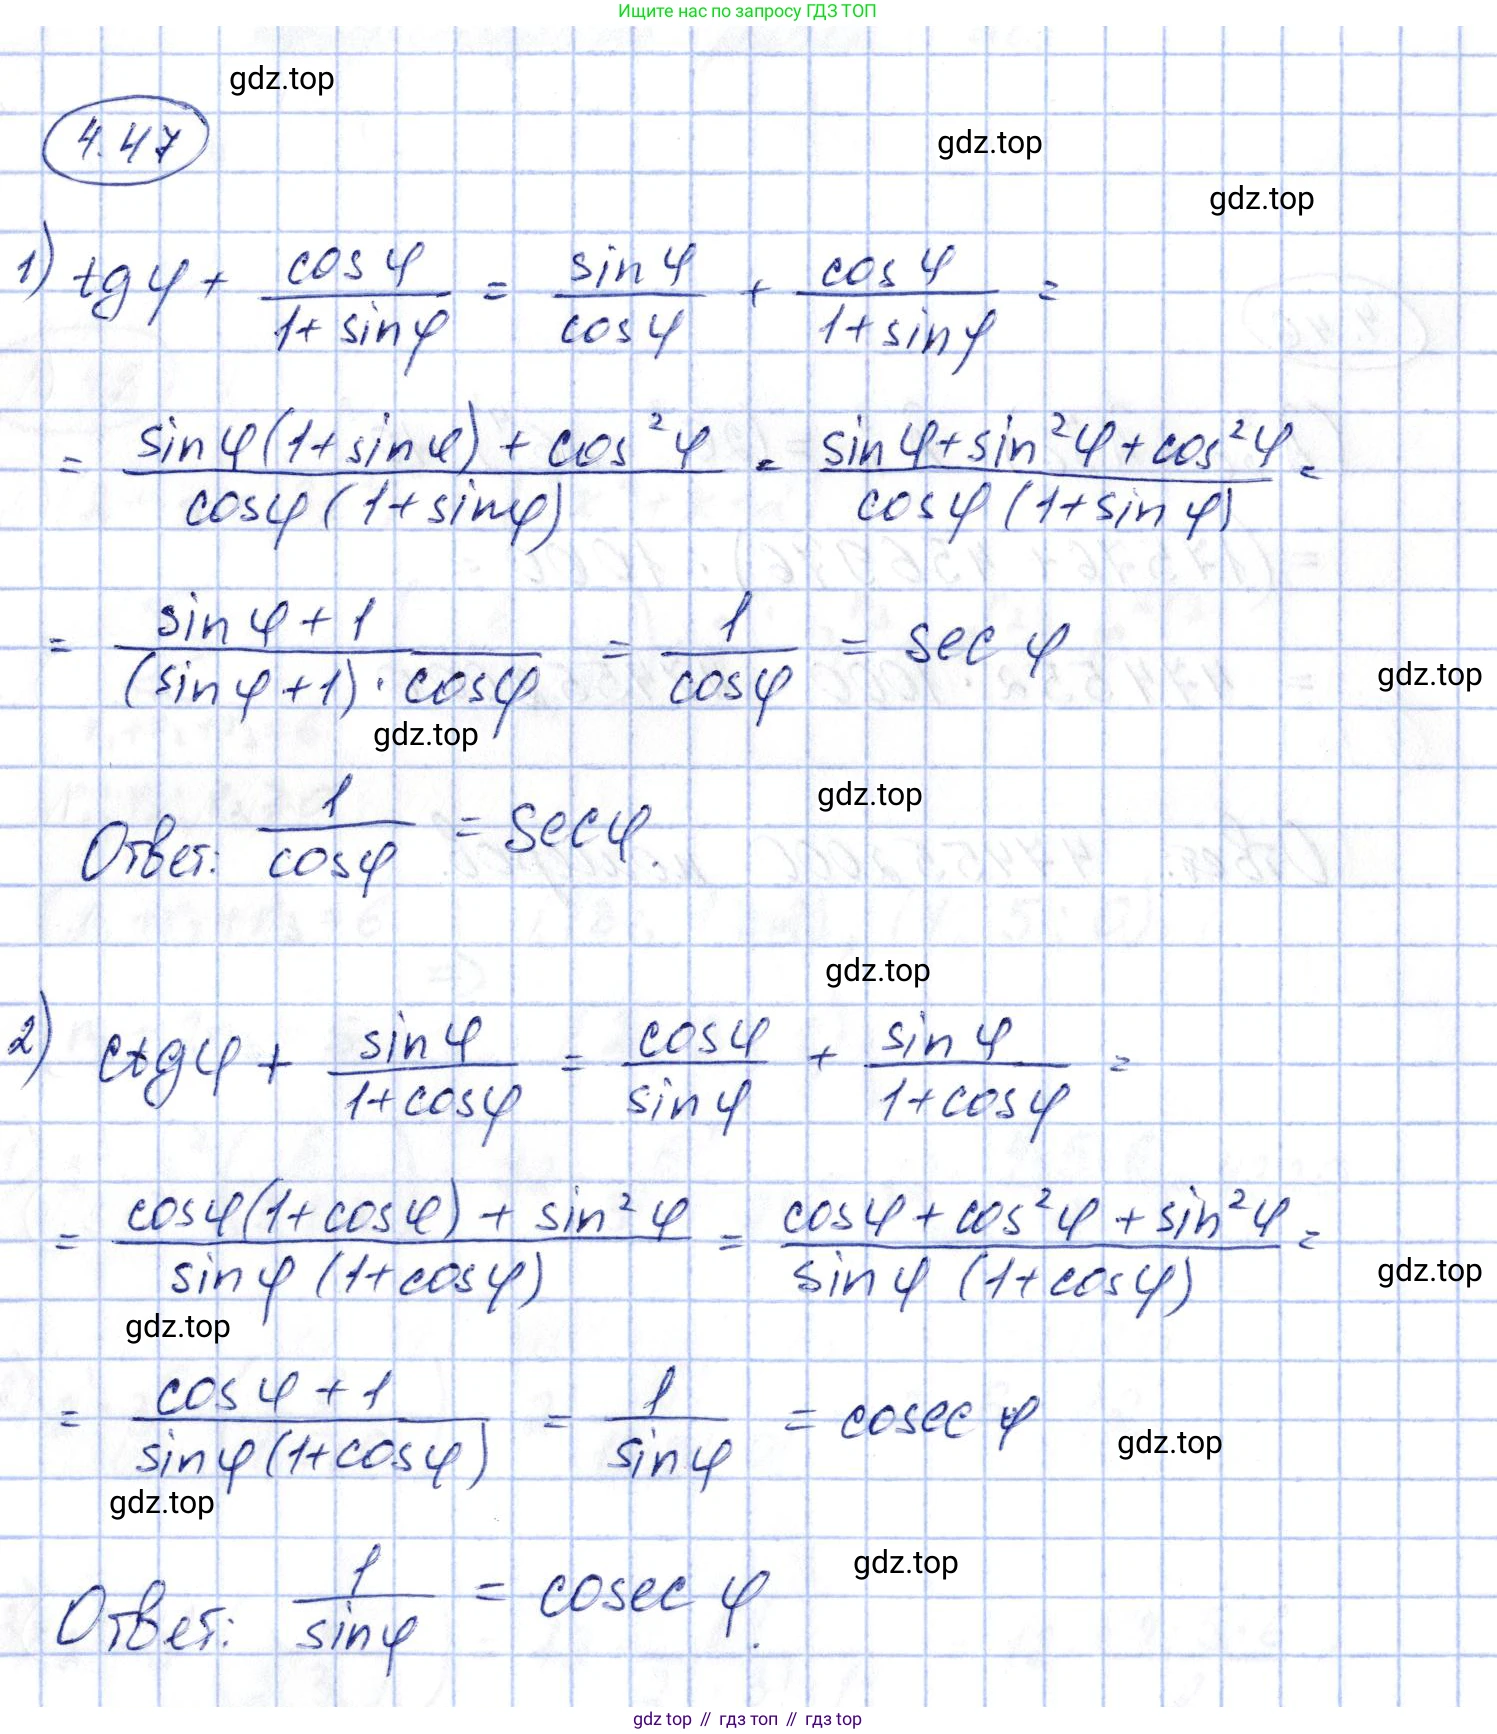 Ищите нас по запросу ГДЗ ТОП
gdz.top
4.47
gdz.top
gdz.top
1) tg φ + cos φ / (1 + sin φ) = sin φ / cos φ + cos φ / (1 + sin φ) =
= (sin φ (1 + sin φ) + cos² φ) / (cos φ (1 + sin φ)) = (sin φ + sin² φ + cos² φ) / (cos φ (1 + sin φ)) =
= (sin φ + 1) / ((sin φ + 1) · cos φ) = 1 / cos φ = sec φ
gdz.top
gdz.top
gdz.top
Ответ: 1 / cos φ = sec φ.
gdz.top
2) ctg φ + sin φ / (1 + cos φ) = cos φ / sin φ + sin φ / (1 + cos φ) =
= (cos φ (1 + cos φ) + sin² φ) / (sin φ (1 + cos φ)) = (cos φ + cos² φ + sin² φ) / (sin φ (1 + cos φ)) =
gdz.top
gdz.top
= (cos φ + 1) / (sin φ (1 + cos φ)) = 1 / sin φ = cosec φ
gdz.top
gdz.top
gdz.top
Ответ: 1 / sin φ = cosec φ.
gdz top // гдз топ // гдз top